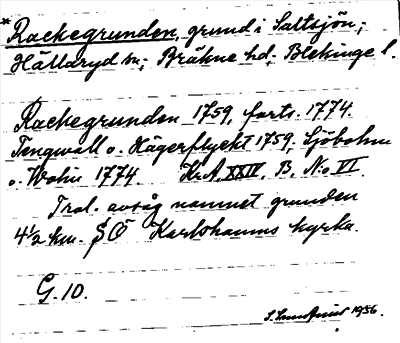 *Rackegrunden, grund i Saltsjön;
Hällaryd sn; Bräkne hd; Blekinge l.
Rackegrunden 1759, forts. 1774.
Tengwall o. Hägerflycht 1759, Sjöbohm
o. Wohn 1774 Kr.A. XXIV, B, N:o VI.
Trol. avsåg namnet grunden
4½ km. SÖ Karlshamns kyrka.
G. 10.
1956.